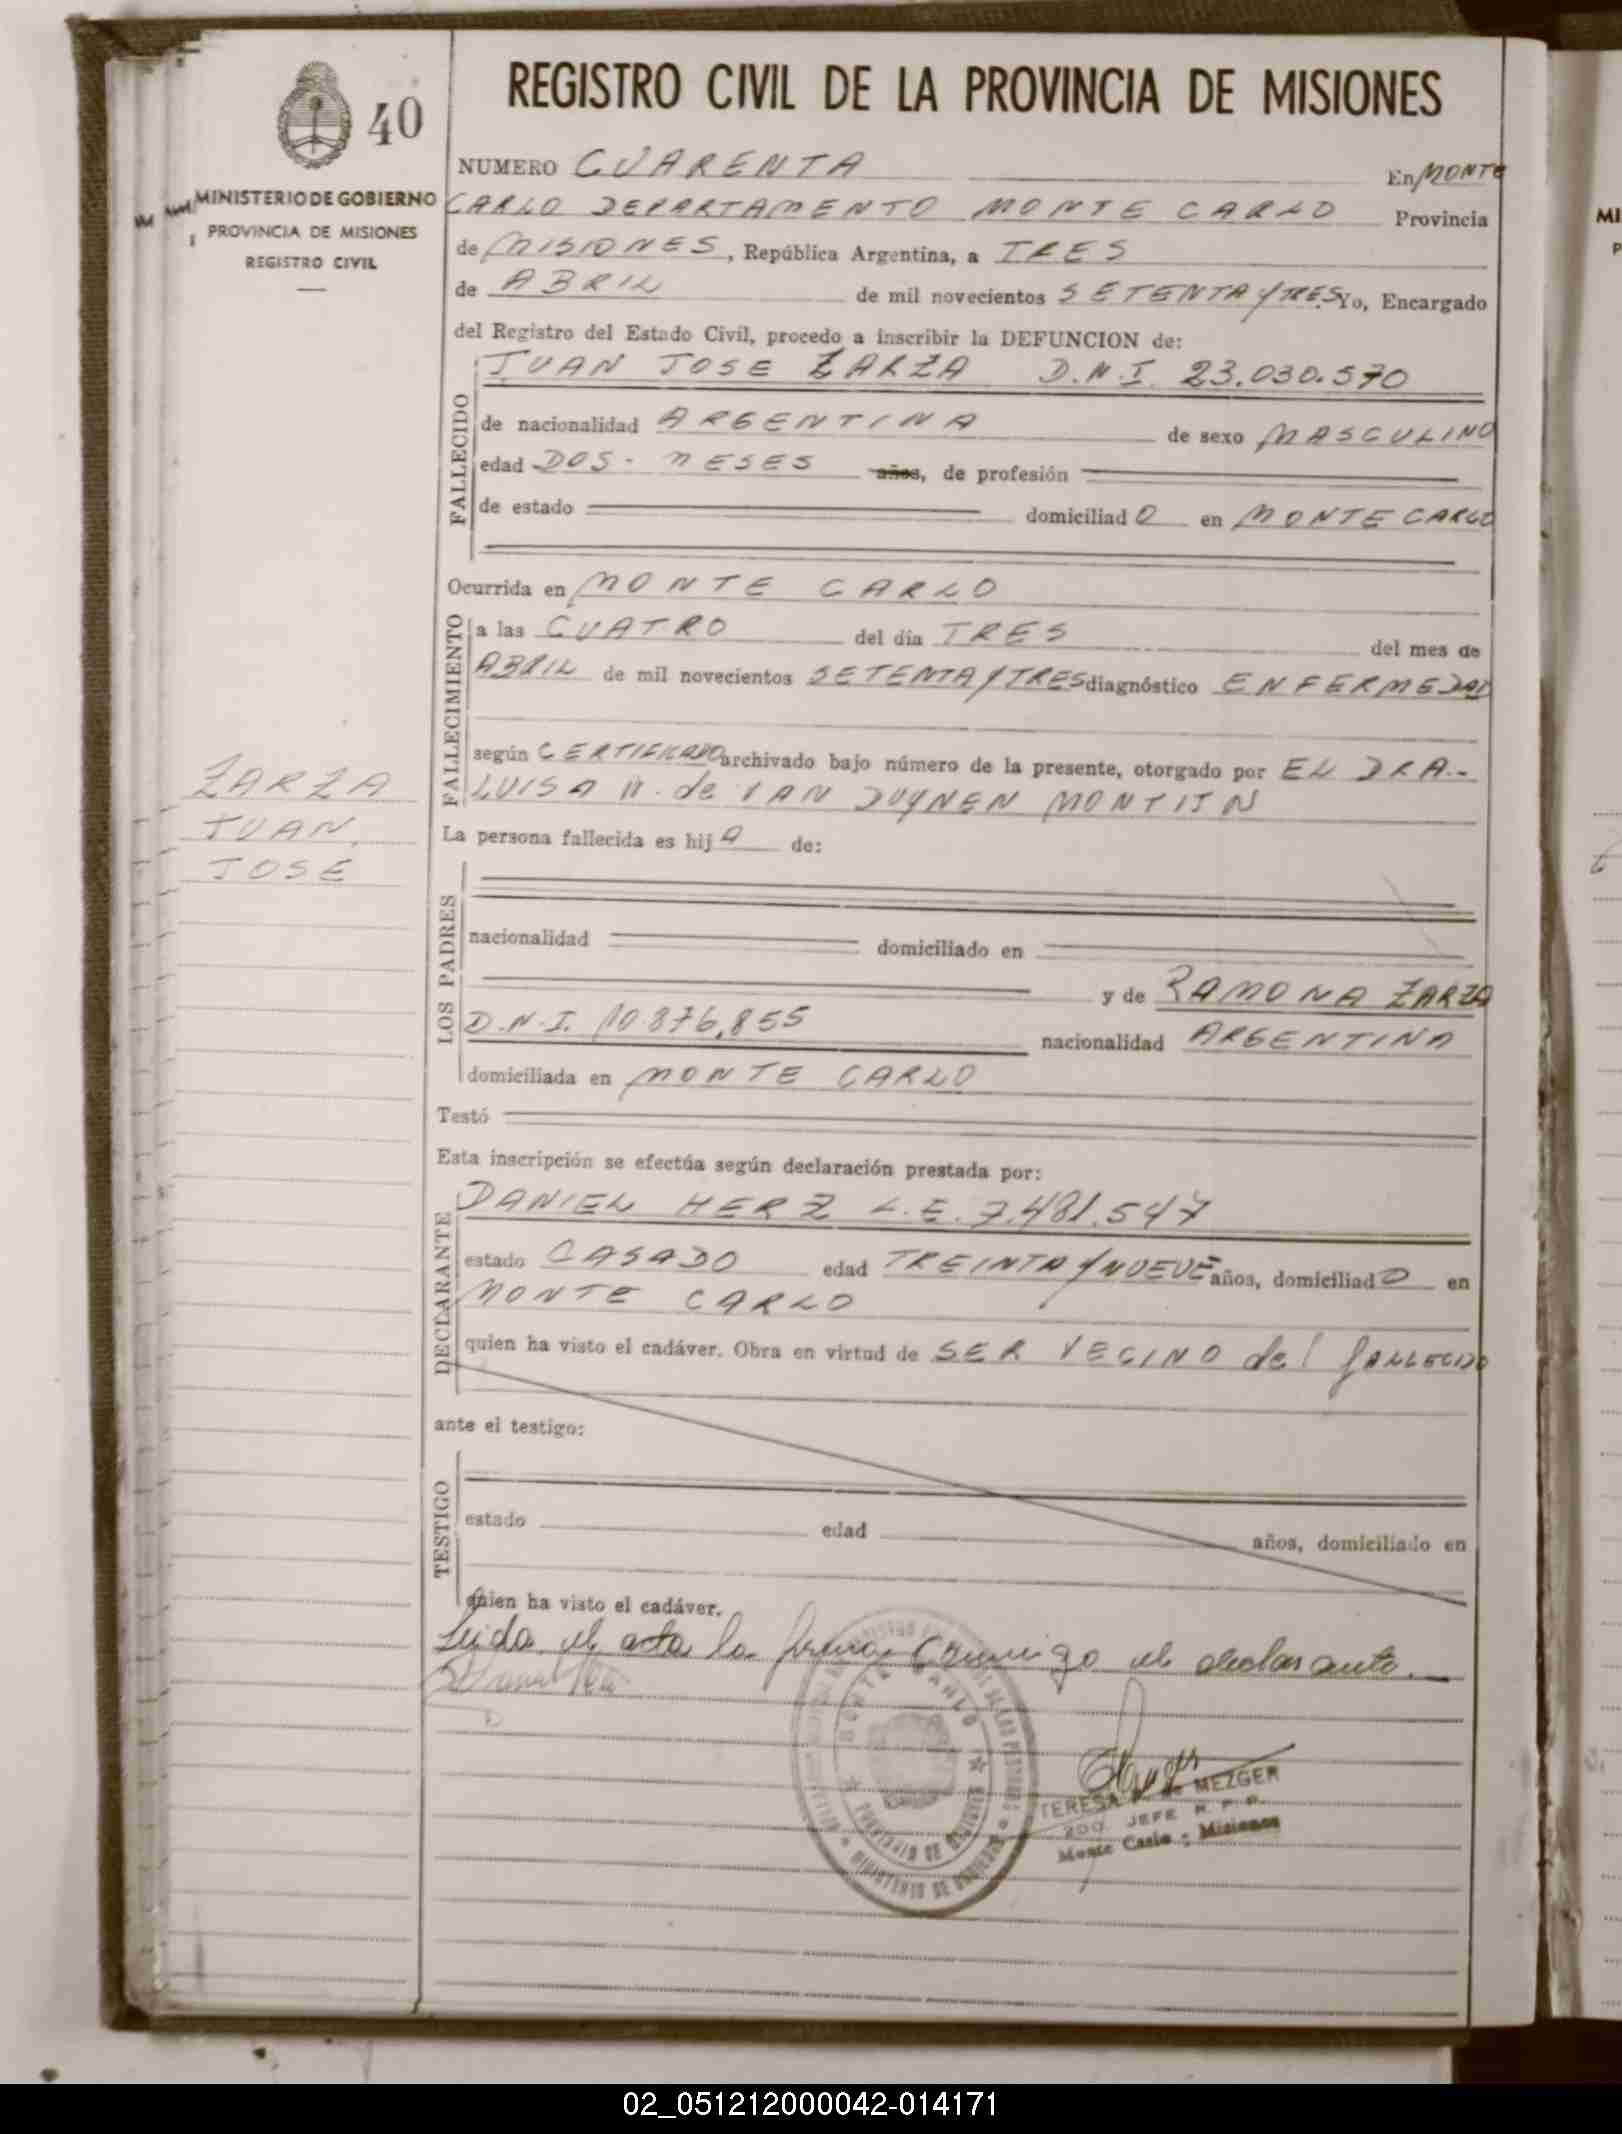 REGISTRO CIVIL DE LA PROVINCIA DE MISIONES
40
MINISTERIO DE GOBIERNO
PROVINCIA DE MISIONES
REGISTRO CIVIL
NUMERO CUARENTA En MONTE
CARLO DEPARTAMENTO MONTE CARLO Provincia
de MISIONES, República Argentina, a TRES
de ABRIL de mil novecientos SETENTA Y TRES Yo, Encargado
del Registro del Estado Civil, procedo a inscribir la DEFUNCION de:
FALLECIDO
JUAN JOSE ZARZA D.N.I. 23.030.570
de nacionalidad ARGENTINA de sexo MASCULINO
edad DOS - MESES años, de profesión
de estado domiciliad O en MONTE CARLO
Ocurrida en MONTE CARLO
FALLECIMIENTO
a las CUATRO del día TRES del mes de
ABRIL de mil novecientos SETENTA Y TRES diagnóstico ENFERMEDAD
según CERTIFICADO archivado bajo número de la presente, otorgado por EL DRA.-
LUISA de VAN DUYNEN
ZARZA
JUAN,
JOSE
La persona fallecida es hij O de:
LOS PADRES
nacionalidad domiciliado en
y de RAMONA ZARZA
D.N.I. 10.876.855 nacionalidad ARGENTINA
domiciliada en MONTE CARLO
Testó
Esta inscripción se efectúa según declaración prestada por:
DECLARANTE
DANIEL HERZ L.E. 7.481.547
estado CASADO edad TREINTA Y NUEVE años, domiciliad O en
MONTE CARLO
quien ha visto el cadáver. Obra en virtud de SER VECINO del FALLECIDO
ante el testigo:
TESTIGO
estado edad años, domiciliado en
quien ha visto el cadáver.
Leida el acta la firma conmigo el declarante.
MONTE CARLO
PROVINCIA DE MISIONES
MINISTERIO DE GOBIERNO
TERESA de MEZGER
2DO. JEFE R. P. P.
Monte Carlo - Misiones
02_051212000042-014171